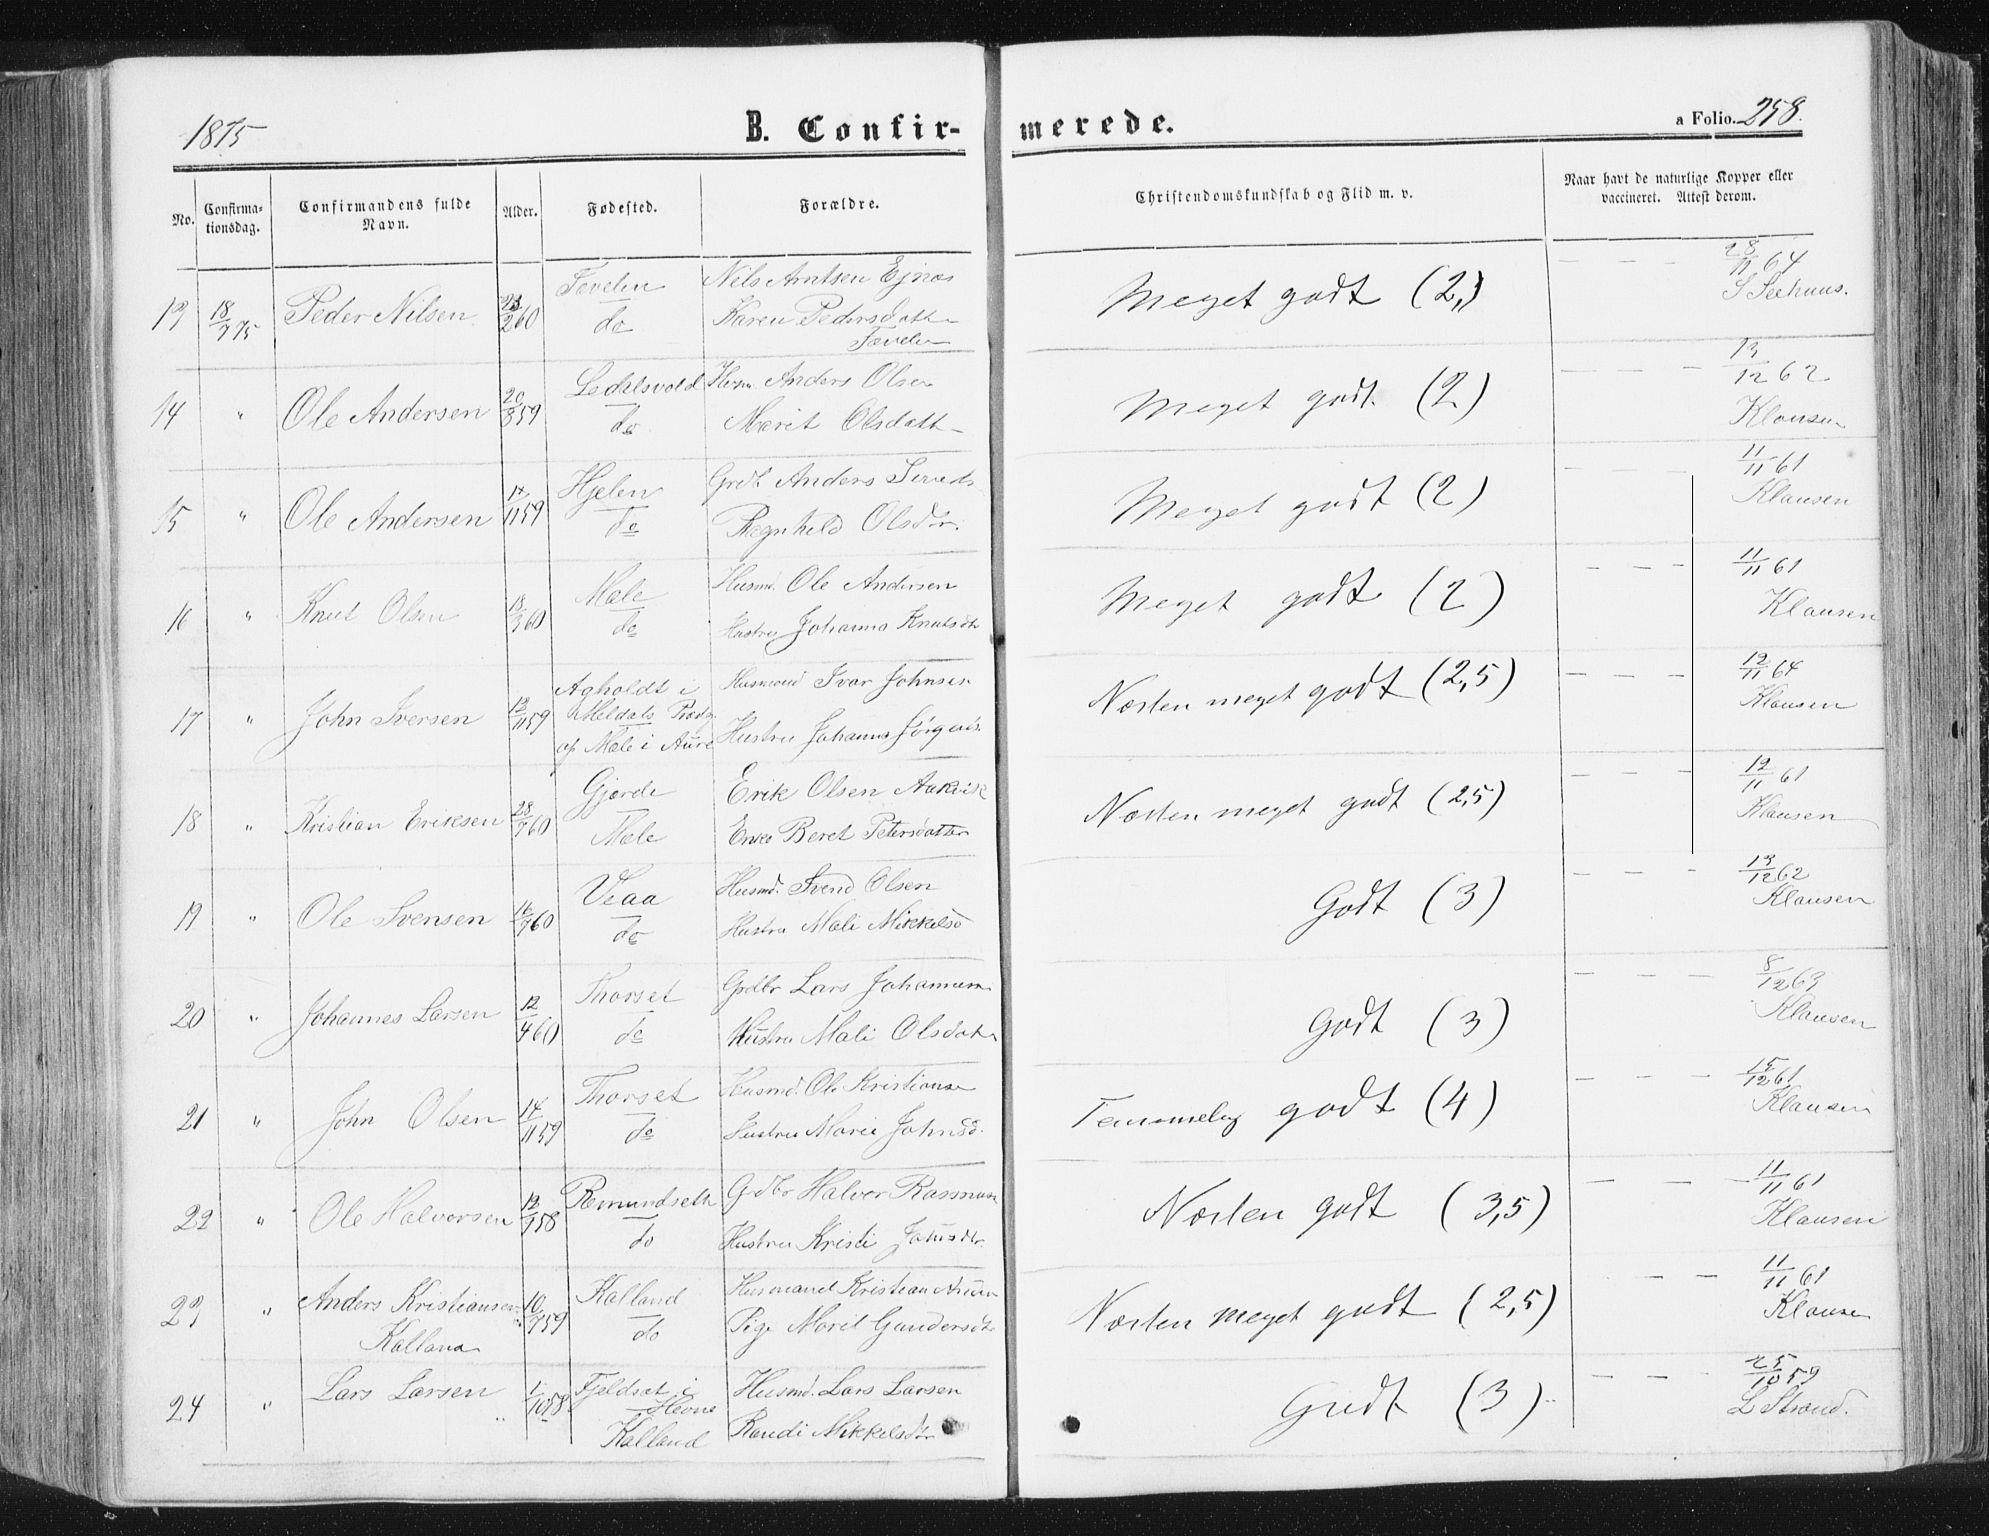 1875
B. Confir- merede.
a Folio. 258.
No.
Confirma-
tionsdag.
Confirmandens fulde
Navn.
Alder.
Fødested.
Forældre.
Christendomskundskab og Flid m. v.
Naar havt de naturlige Kopper eller
vaccineret. Attest derom.
13 18/7 75 Peder Nilsen 60 Tævelen Nils Arntsen
do Karen Pedersdatt
Tævelen
Meget godt (2,) 28/11 64
S Seehuus.
14 " Ole Andersen 20/8 59 Ledalsvold Husm. Anders Olsen
do. Marit Olsdatt
Meget godt (2) 13/12 62
Klausen
15 " Ole Andersen 59 Hjelen Grdb Anders
do Ragnhild Olsdtr.
Meget godt (2) 11/11 61
Klausen
16 " Knut Olsen 18/3 60 Mæle Husmd. Ole Andersen
do Hustru Johanna Knutsdtr
Meget godt (2) 11/11 61
Klausen
17 " John Iversen 13/11 59 Agholdt i Husmand Ivar Johnsen
Meldals Præstg
af Mæle i Aure Hustru Johanna Jørgens
Næsten meget godt (2,5) 12/11 64
Klausen
18 " Kristian Eriksen 28/7 60 Gjørde Erik Olsen Aakvik
Mæle Enke Beret Petersdatter
Næsten meget godt (2,5) 12/11 61
Klausen
19 " Ole Svensen 16/7 60 Veaa Husmd. Svend Olsen
do Hustru Mali Mikkelsd
Godt (3) 13/12 62
Klausen
20 " Johannes Larsen 12/4 60 Thorset Grdbr Lars Johannesen
do Hustru Mali Olsdatt
Godt (3) 8/12 63
Klausen
21 " John Olsen 14/11 59 Thorset Husmd. Ole Kristiansen
do Hustru Marie Johnsd.
Temmelig godt (4) 15/12 61
Klausen
22 " Ole Halvorsen 12/7 58 Romundseth Grdbr Halvor Rasmusen
do Hustru Kristi
Næsten godt (3,5) 11/11 61
Klausen
23 " Anders Kristiansen 10/7 59 Kalland Husmand Kristian
Kalland do Pige Marit Gundersdtr
Næsten meget godt (2,5) 11/11 61
Klausen
24 " Lars Larsen 1/10 58 Fjeldset i Husmd. Lars Larsen
Hevne
Kalland Randi Mikkelsdtr
Godt (3) 25/10 59
L Strand.